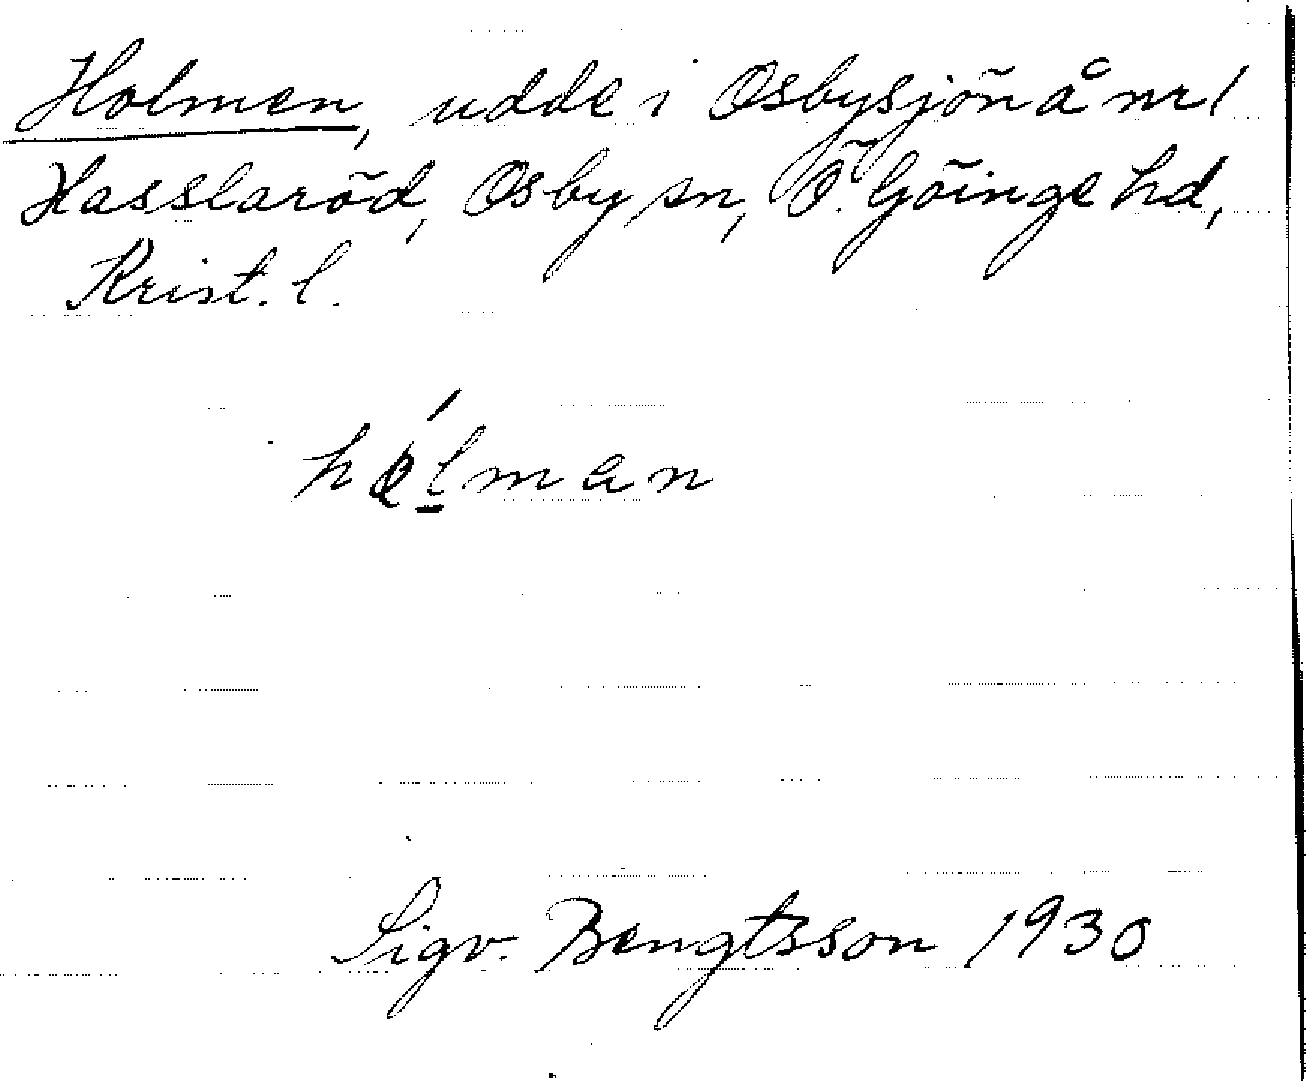 Holmen, udde i Osbysjön å nr 1
Hasslaröd, Osby sn, Ö. Göinge hd,
Krist. l.
hó̜l̲man
Sigv. Bengtsson 1930